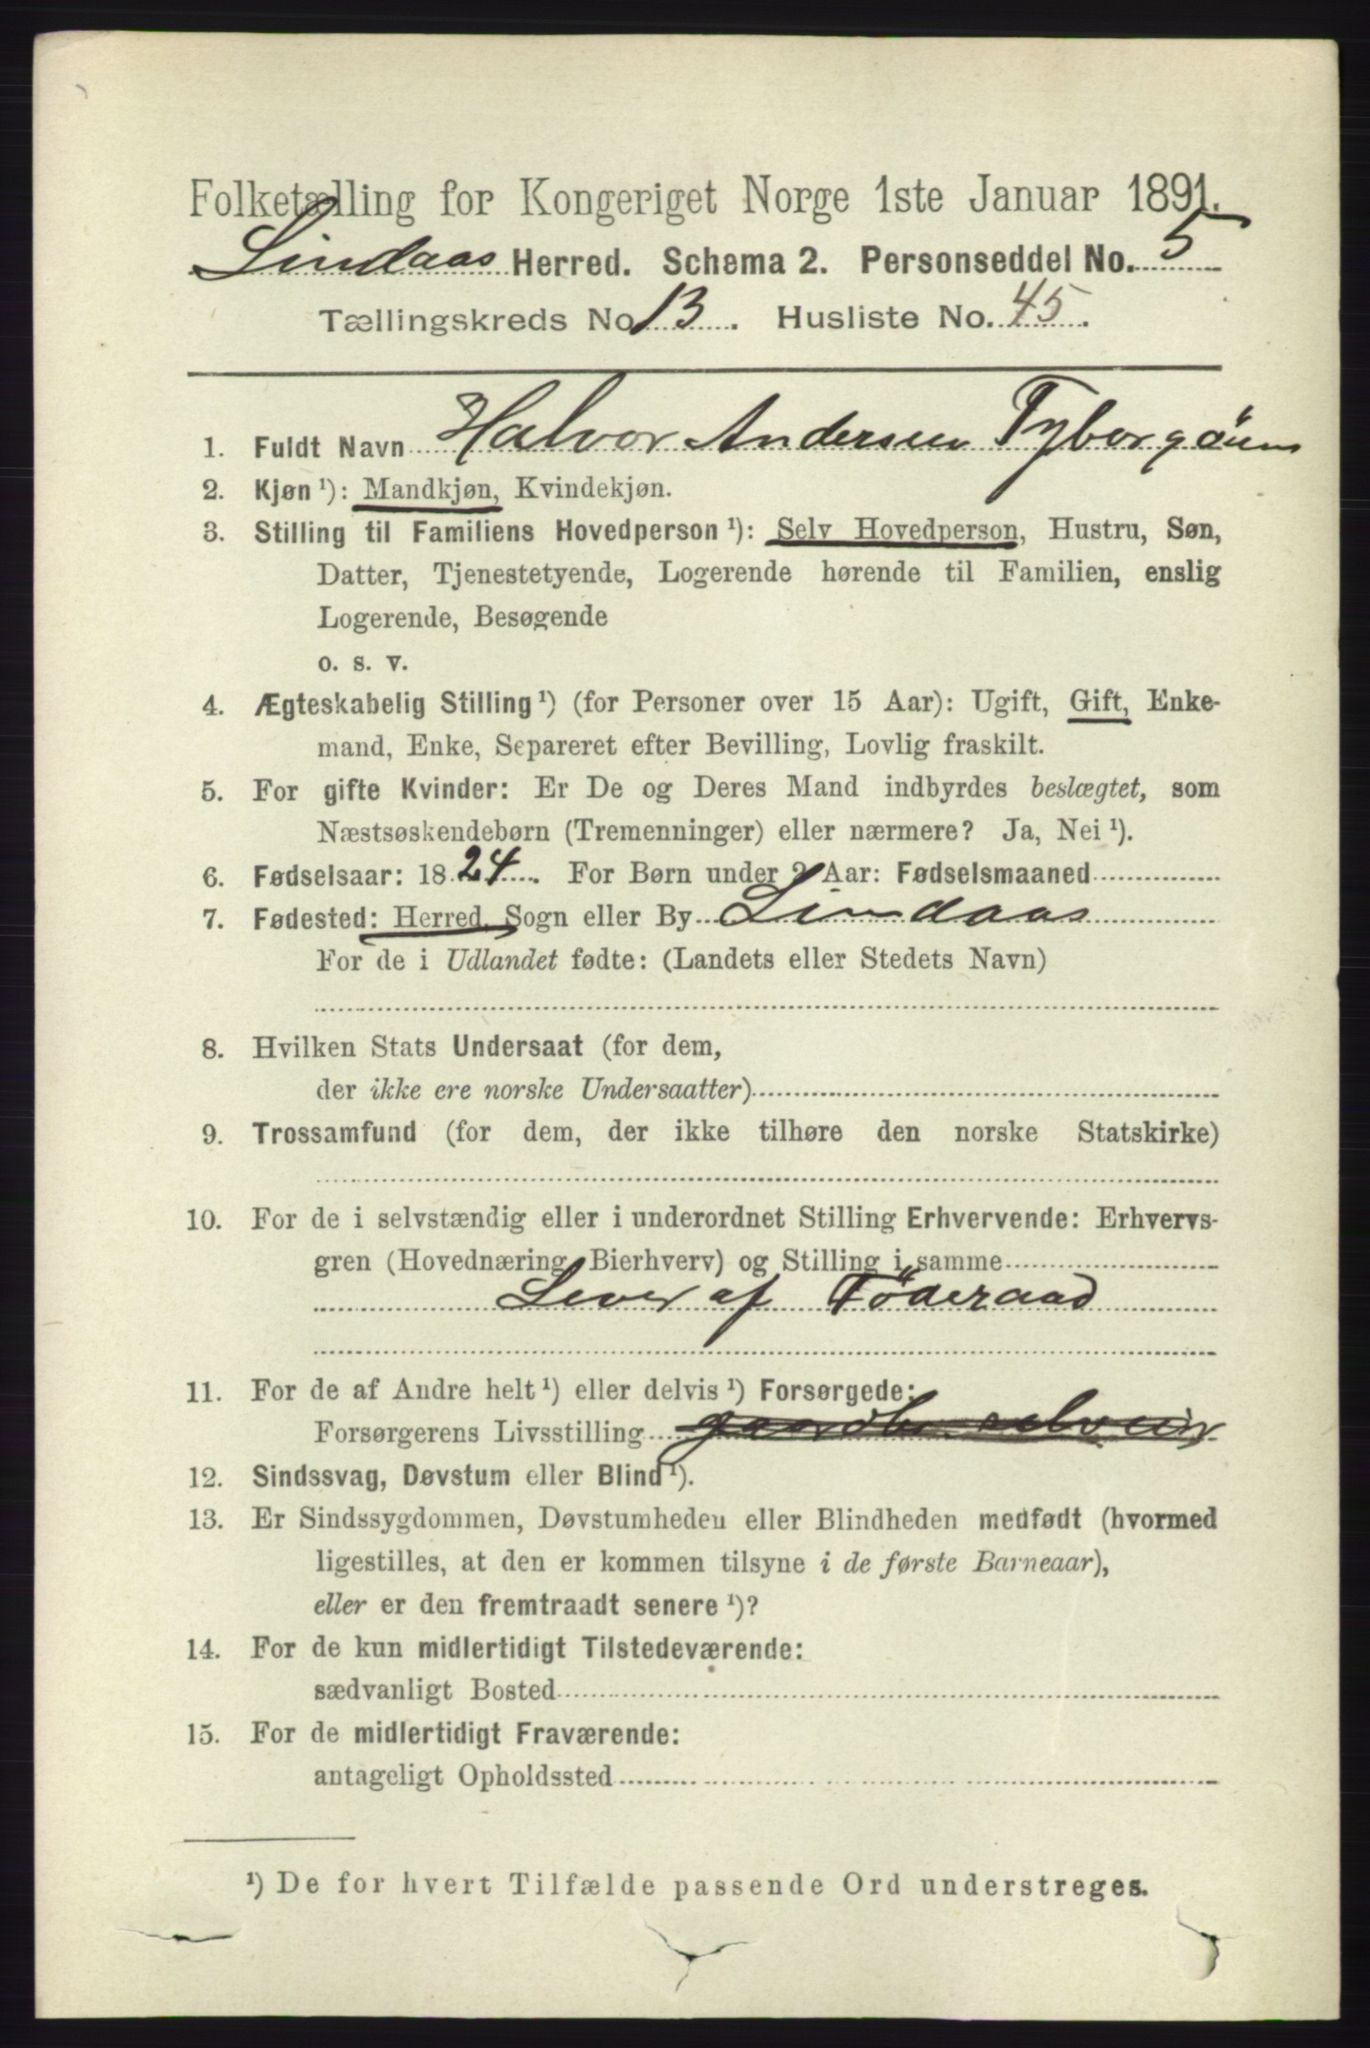 Folketælling for Kongeriget Norge 1ste Januar 1891.
Lindaas Herred. Schema 2. Personseddel No. 5
Tællingskreds No 13. Husliste No. 45.
1. Fuldt Navn Halvor Andersen
2. Kjøn ¹): Mandkjøn, Kvindekjøn.
3. Stilling til Familiens Hovedperson ¹): Selv Hovedperson, Hustru, Søn,
Datter, Tjenestetyende, Logerende hørende til Familien, enslig
Logerende, Besøgende
o. s. v.
4. Ægteskabelig Stilling ¹) (for Personer over 15 Aar): Ugift, Gift, Enke-
mand, Enke, Separeret efter Bevilling, Lovlig fraskilt.
5. For gifte Kvinder: Er De og Deres Mand indbyrdes beslægtet, som
Næstsøskendebørn (Tremenninger) eller nærmere? Ja, Nei ¹).
6. Fødselsaar: 1824. For Børn under 2 Aar: Fødselsmaaned
7. Fødested: Herred, Sogn eller By Lindaas
For de i Udlandet fødte: (Landets eller Stedets Navn)
8. Hvilken Stats Undersaat (for dem,
der ikke ere norske Undersaatter)
9. Trossamfund (for dem, der ikke tilhøre den norske Statskirke)
10. For de i selvstændig eller i underordnet Stilling Erhvervende: Erhvervs-
gren (Hovednæring, Bierhverv) og Stilling i samme
Lever af Föderaad
11. For de af Andre helt ¹) eller delvis ¹) Forsørgede:
Forsørgerens Livsstilling gaardbr. selveier
12. Sindssvag, Døvstum eller Blind ¹).
13. Er Sindssygdommen, Døvstumheden eller Blindheden medfødt (hvormed
ligestilles, at den er kommen tilsyne i de første Barneaar),
eller er den fremtraadt senere ¹)?
14. For de kun midlertidigt Tilstedeværende:
sædvanligt Bosted
15. For de midlertidigt Fraværende:
antageligt Opholdssted
¹) De for hvert Tilfælde passende Ord understreges.